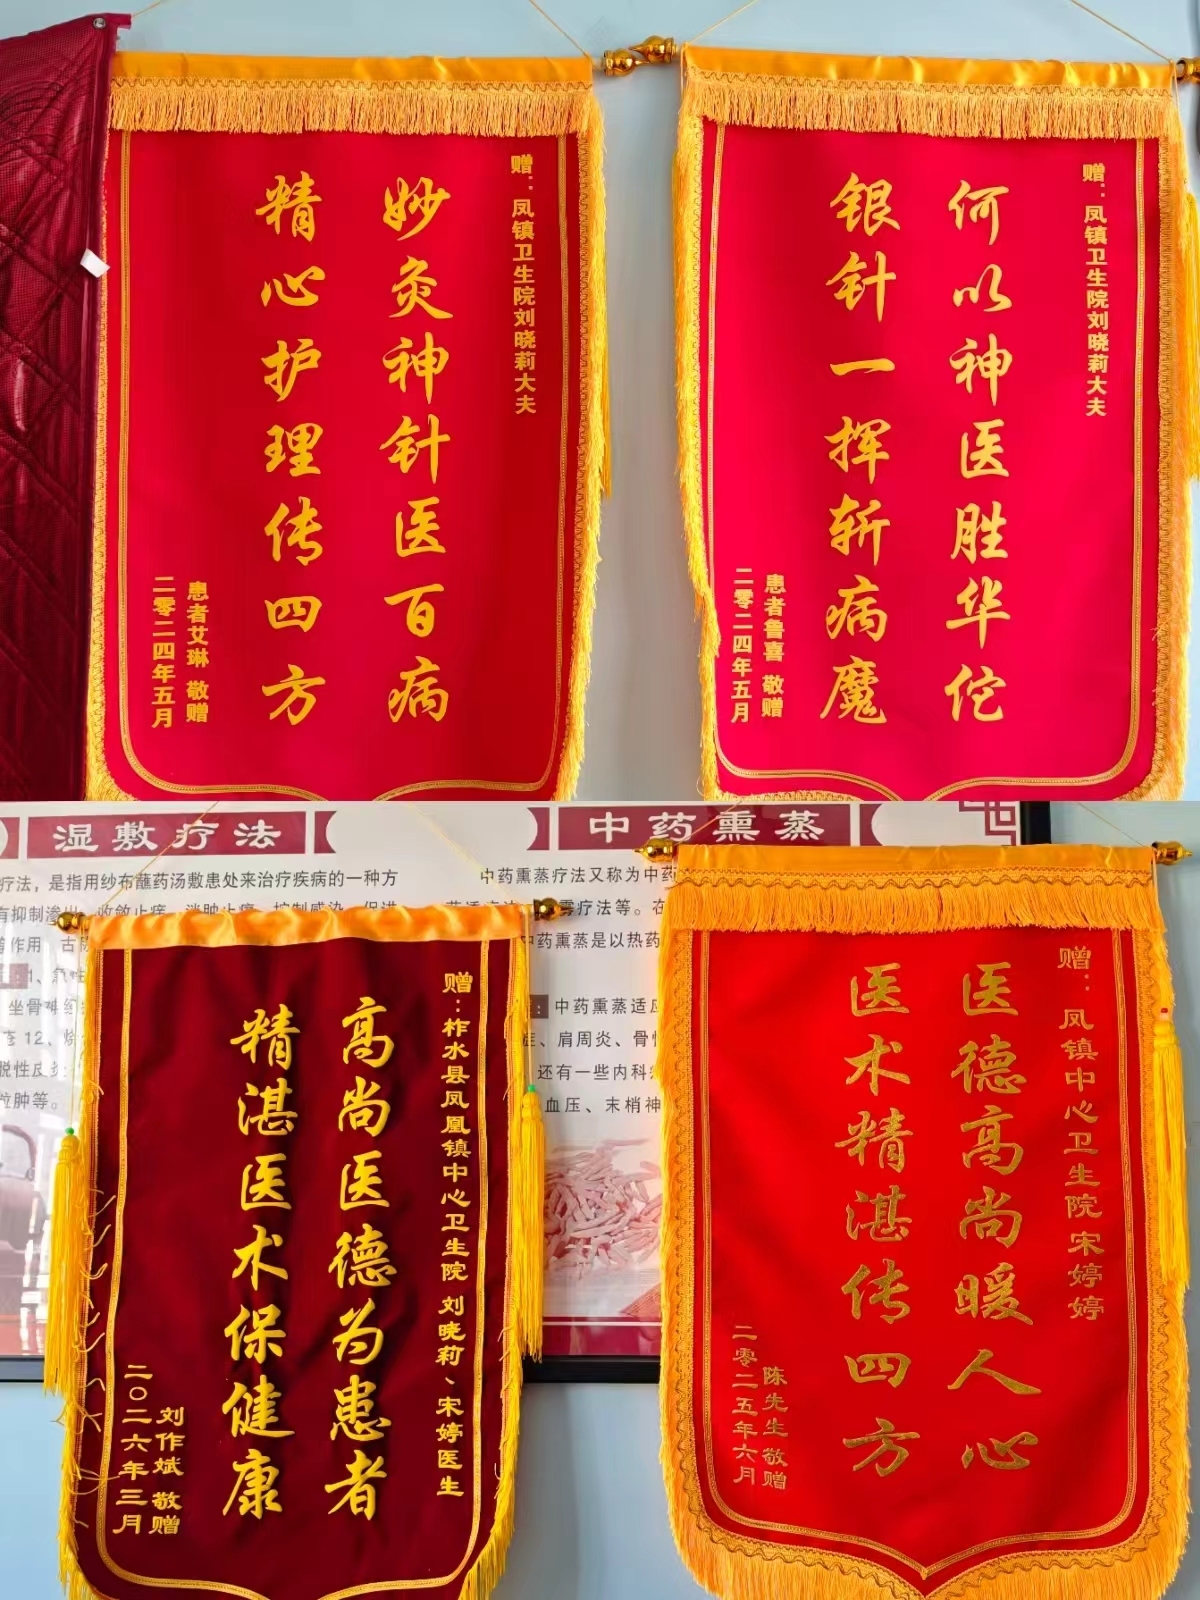 赠：凤镇卫生院刘晓莉大夫
妙灸神针医百病
精心护理传四方
患者艾琳 敬赠
二零二四年五月
赠：凤镇卫生院刘晓莉大夫
何以神医胜华佗
银针一挥斩病魔
患者鲁喜 敬赠
二零二四年五月
湿敷疗法
疗法，是指用纱布蘸药汤敷患处来治疗疾病的一种方
有抑制渗出
作用
1、急性
坐骨神经
12、
脱性皮炎
肿等。
中药熏蒸
中药熏蒸疗法又称为中药
疗法等。在
中药熏蒸是以热药
中药熏蒸适应
症、肩周炎、骨性
还有一些内科
血压、末梢神
赠：柞水县凤凰镇中心卫生院 刘晓莉、宋婷医生
高尚医德为患者
精湛医术保健康
刘作斌 敬赠
二〇二六年三月
赠：凤镇中心卫生院宋婷婷
医德高尚暖人心
医术精湛传四方
陈先生敬赠
二零二五年六月